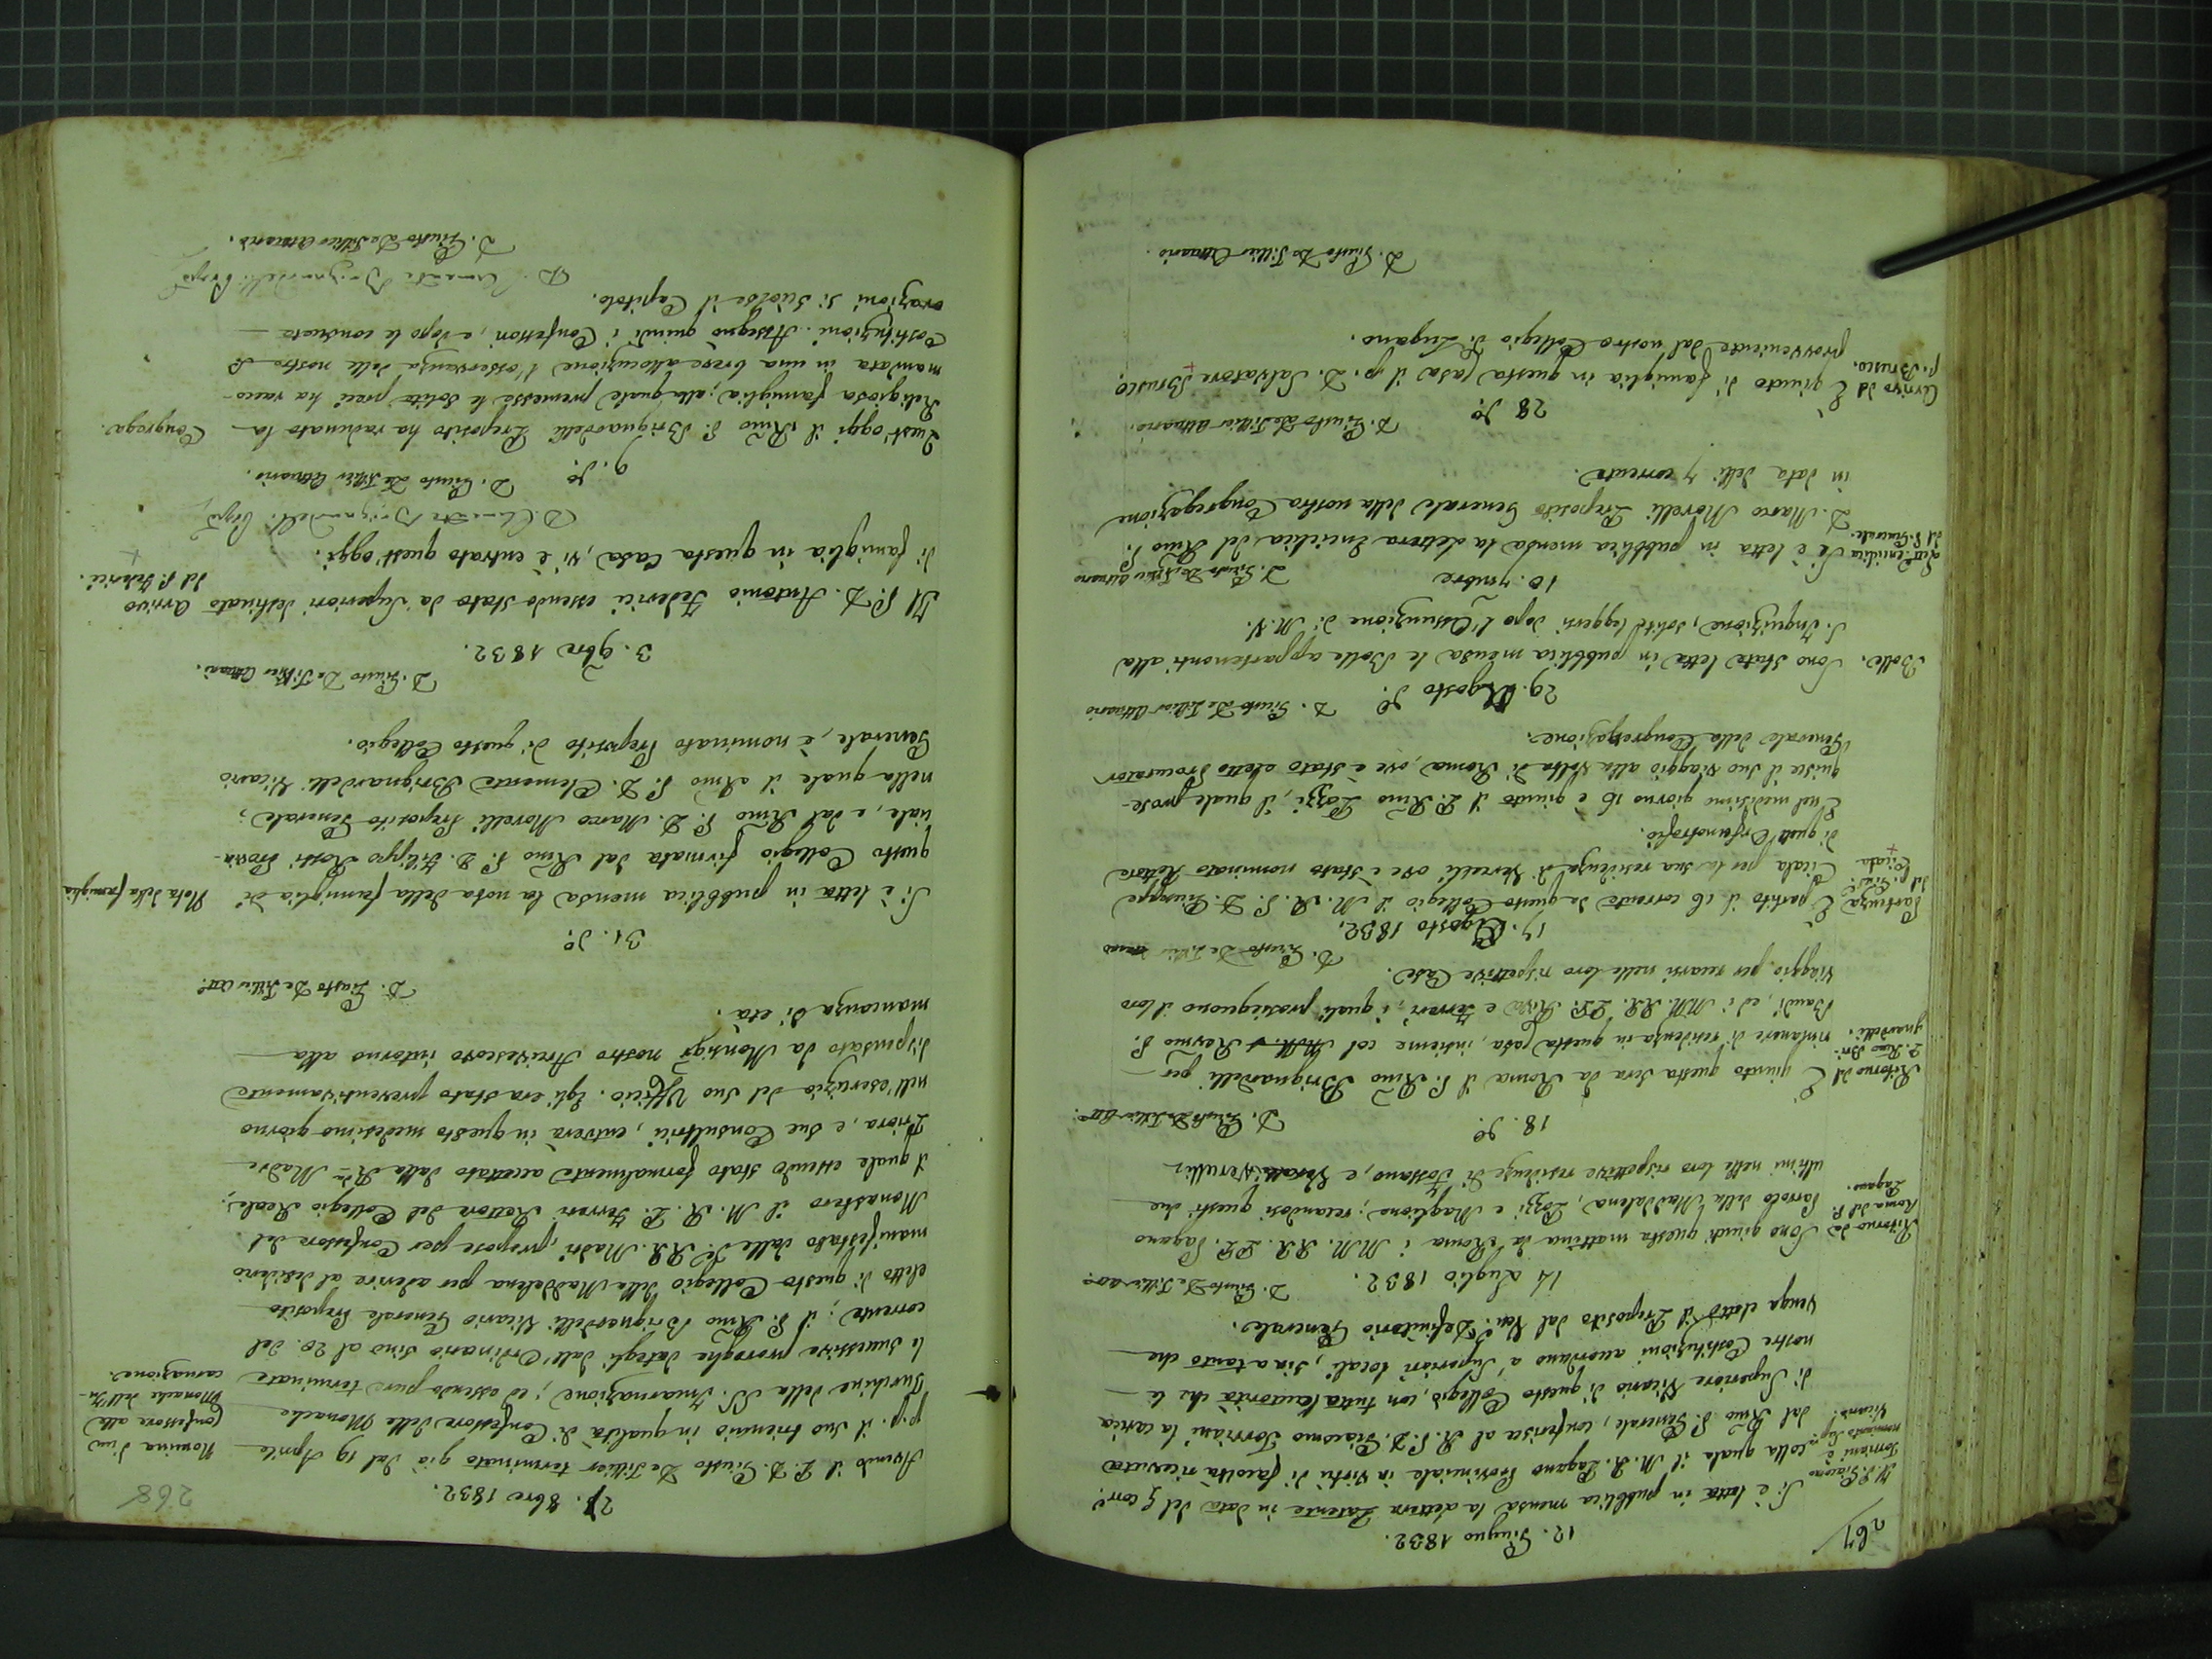 267
12. Giugno 1832.
R. P. Giacomo
Torriani è
nominato Sup.re
Vicario.
Si è letta in pubblica mensa la lettera Patente in data del 5 corr.e
colla quale il M. R. Pagano Provinciale in virtù di facoltà ricevuta
dal Rmo P. Generale, conferisce al R. P. D. Giacomo Torriani la carica
di Superiore Vicario di questo Collegio, con tutta l'autorità che le
nostre Costituzioni accordano a' Superiori locali, sin a tanto che
venga eletto il Preposito dal Ven. Definitorio Generale.
14 Luglio 1832.
D. Giusto De Tillier att.o
Ritorno da
Roma del P.
Pagano.
Sono giunti questa mattina da Roma i MM. RR. PP. Pagano
Parroco della Maddalena, Pozzi e Maglione; recandosi questi due
ultimi nelle loro rispettive residenze di Fossano, e Vercelli.
18. do.
D. Giusto De Tillier att.o
Ritorno del
P. Rmo Bri-
gnardelli.
È giunto questa sera da Roma il P. Rmo Brignardelli per
rimanere di residenza in questa casa, insieme col Rosmo P.
Baudi, ed i MM. RR. PP. Riva e Ferreri, i quali proseguono il loro
viaggio per recarsi nelle loro rispettive Case.
D. Giusto De Tillier
17. Agosto 1832.
Partenza
del P. Gius.e
Ciala
+
È partito il 16 corrente da questo Collegio il M. R. P. D. Giuseppe
Ciala per la sua residenza di Vercelli ove è stato nominato Rettore
di quell'Orfanotrofio.
E nel medesimo giorno 16 è giunto il P. Rmo Pozzi, il quale prose-
guisce il suo viaggio alla volta di Roma, ove è stato eletto Procurator
Generale della Congregazione.
29. Agosto do.
D. Giusto De Tillier Attuario
Bolle.
Sono state lette in pubblica mensa le Bolle appartenenti alla
S. Inquisizione, solite leggersi dopo l'Assunzione di M. V.
10. 7mbre
D. Giusto De Tillier Attuario
Lett. Enciclica
del P. Generale.
Si è letta in pubblica mensa la lettera Enciclica del Rmo P.
D. Marco Morelli Preposito Generale della nostra Congregazione
in data delli 7 corrente.
D. Giusto De Tillier Attuario.
28 do.
Arrivo del
p. Brusco.
È giunto di famiglia in questa Casa il p. D. Salvatore Brusco,
+
provveniente dal nostro Collegio di Lugano.
D. Giusto De Tillier Attuario.
268
27. 8bre 1832.
Nomina d'un
Confessore alle
Monache dell'In-
carnazione.
Avendo il P. D. Giusto De Tillier terminato già dal 19 Aprile
p.p. il suo triennio in qualità di Confessore delle Monache
Turchine della SS. Incarnazione; ed essendo pure terminate
le successive proroghe dategli dall'Ordinario sino al 20. del
corrente; il P. Rmo Brignardelli Vicario Generale Preposito
eletto di questo Collegio della Maddalena per aderire al desiderio
manifestato dalle RR. Madri, propose per Confessore del
Monastero il M. R. P. Ferreri Rettore del Collegio Reale;
il quale essendo stato formalmente accettato dalla R.da Madre
Priora, e due Consultrici, entrerà in questo medesimo giorno
nell'esercizio del suo Ufficio. Egli era stato preventivamente
dispensato da Monsigr nostro Arcivescovo intorno alla
mancanza di età.
D. Giusto De Tillier Att.o
31. do.
Nota della famiglia
Si è letta in pubblica mensa la nota della famiglia di
questo Collegio firmata dal Rmo P. D. Filippo Rossi Provin-
ciale, e dal Rmo P. D. Marco Morelli Preposito Generale;
nella quale il Rmo P. D. Clemente Brignardelli Vicario
Generale, è nominato Preposito di questo Collegio.
D. Giusto De Tillier Attuari.
3. 9bre 1832.
Arrivo
del P. Federici.
+
Il P. D. Antonio Federici essendo stato da' Superiori destinato
di famiglia in questa Casa, vi è entrato quest'oggi.
D. Clemente Brignardelli Prep.to
D. Giusto De Tillier Attuario.
9. do.
Congrega.
Quest'oggi il Rmo P. Brignardelli Preposito ha radunato la
Religiosa famiglia; alla quale premesse le solite preci ha racco-
mandata in una breve allocuzione l'osservanza delle nostre
Costituzioni. Assegnò quindi i Confessori, e dopo le consuete
orazioni si sciolse il Capitolo.
D. Clemente Brignardelli Prep.to
D. Giusto De Tillier Attuario.